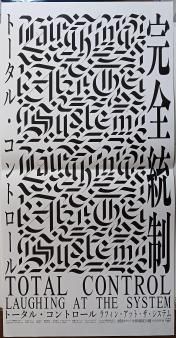 完全統制
トータル・コントロール
Laughing
At The
System
Laughing
At The
System
TOTAL CONTROL
LAUGHING AT THE SYSTEM
トータル・コントロール ラフィン・アット・ザ・システム